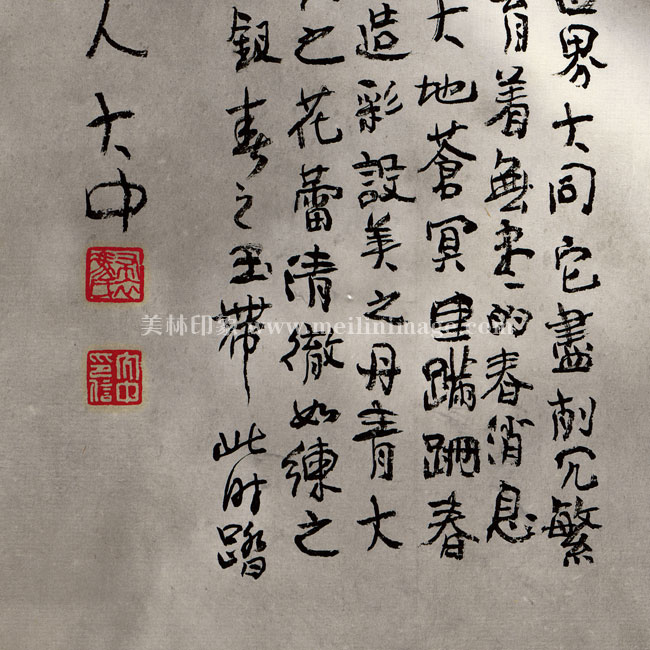 世界大同它盡削冗繁
着無聲的春消息
大地蒼冥使蹣跚春
造彩設美之丹青大
之花蕾清徹如練之
銀春之玉帶此时踏
人大中
美林印象 www.meilinimage.com